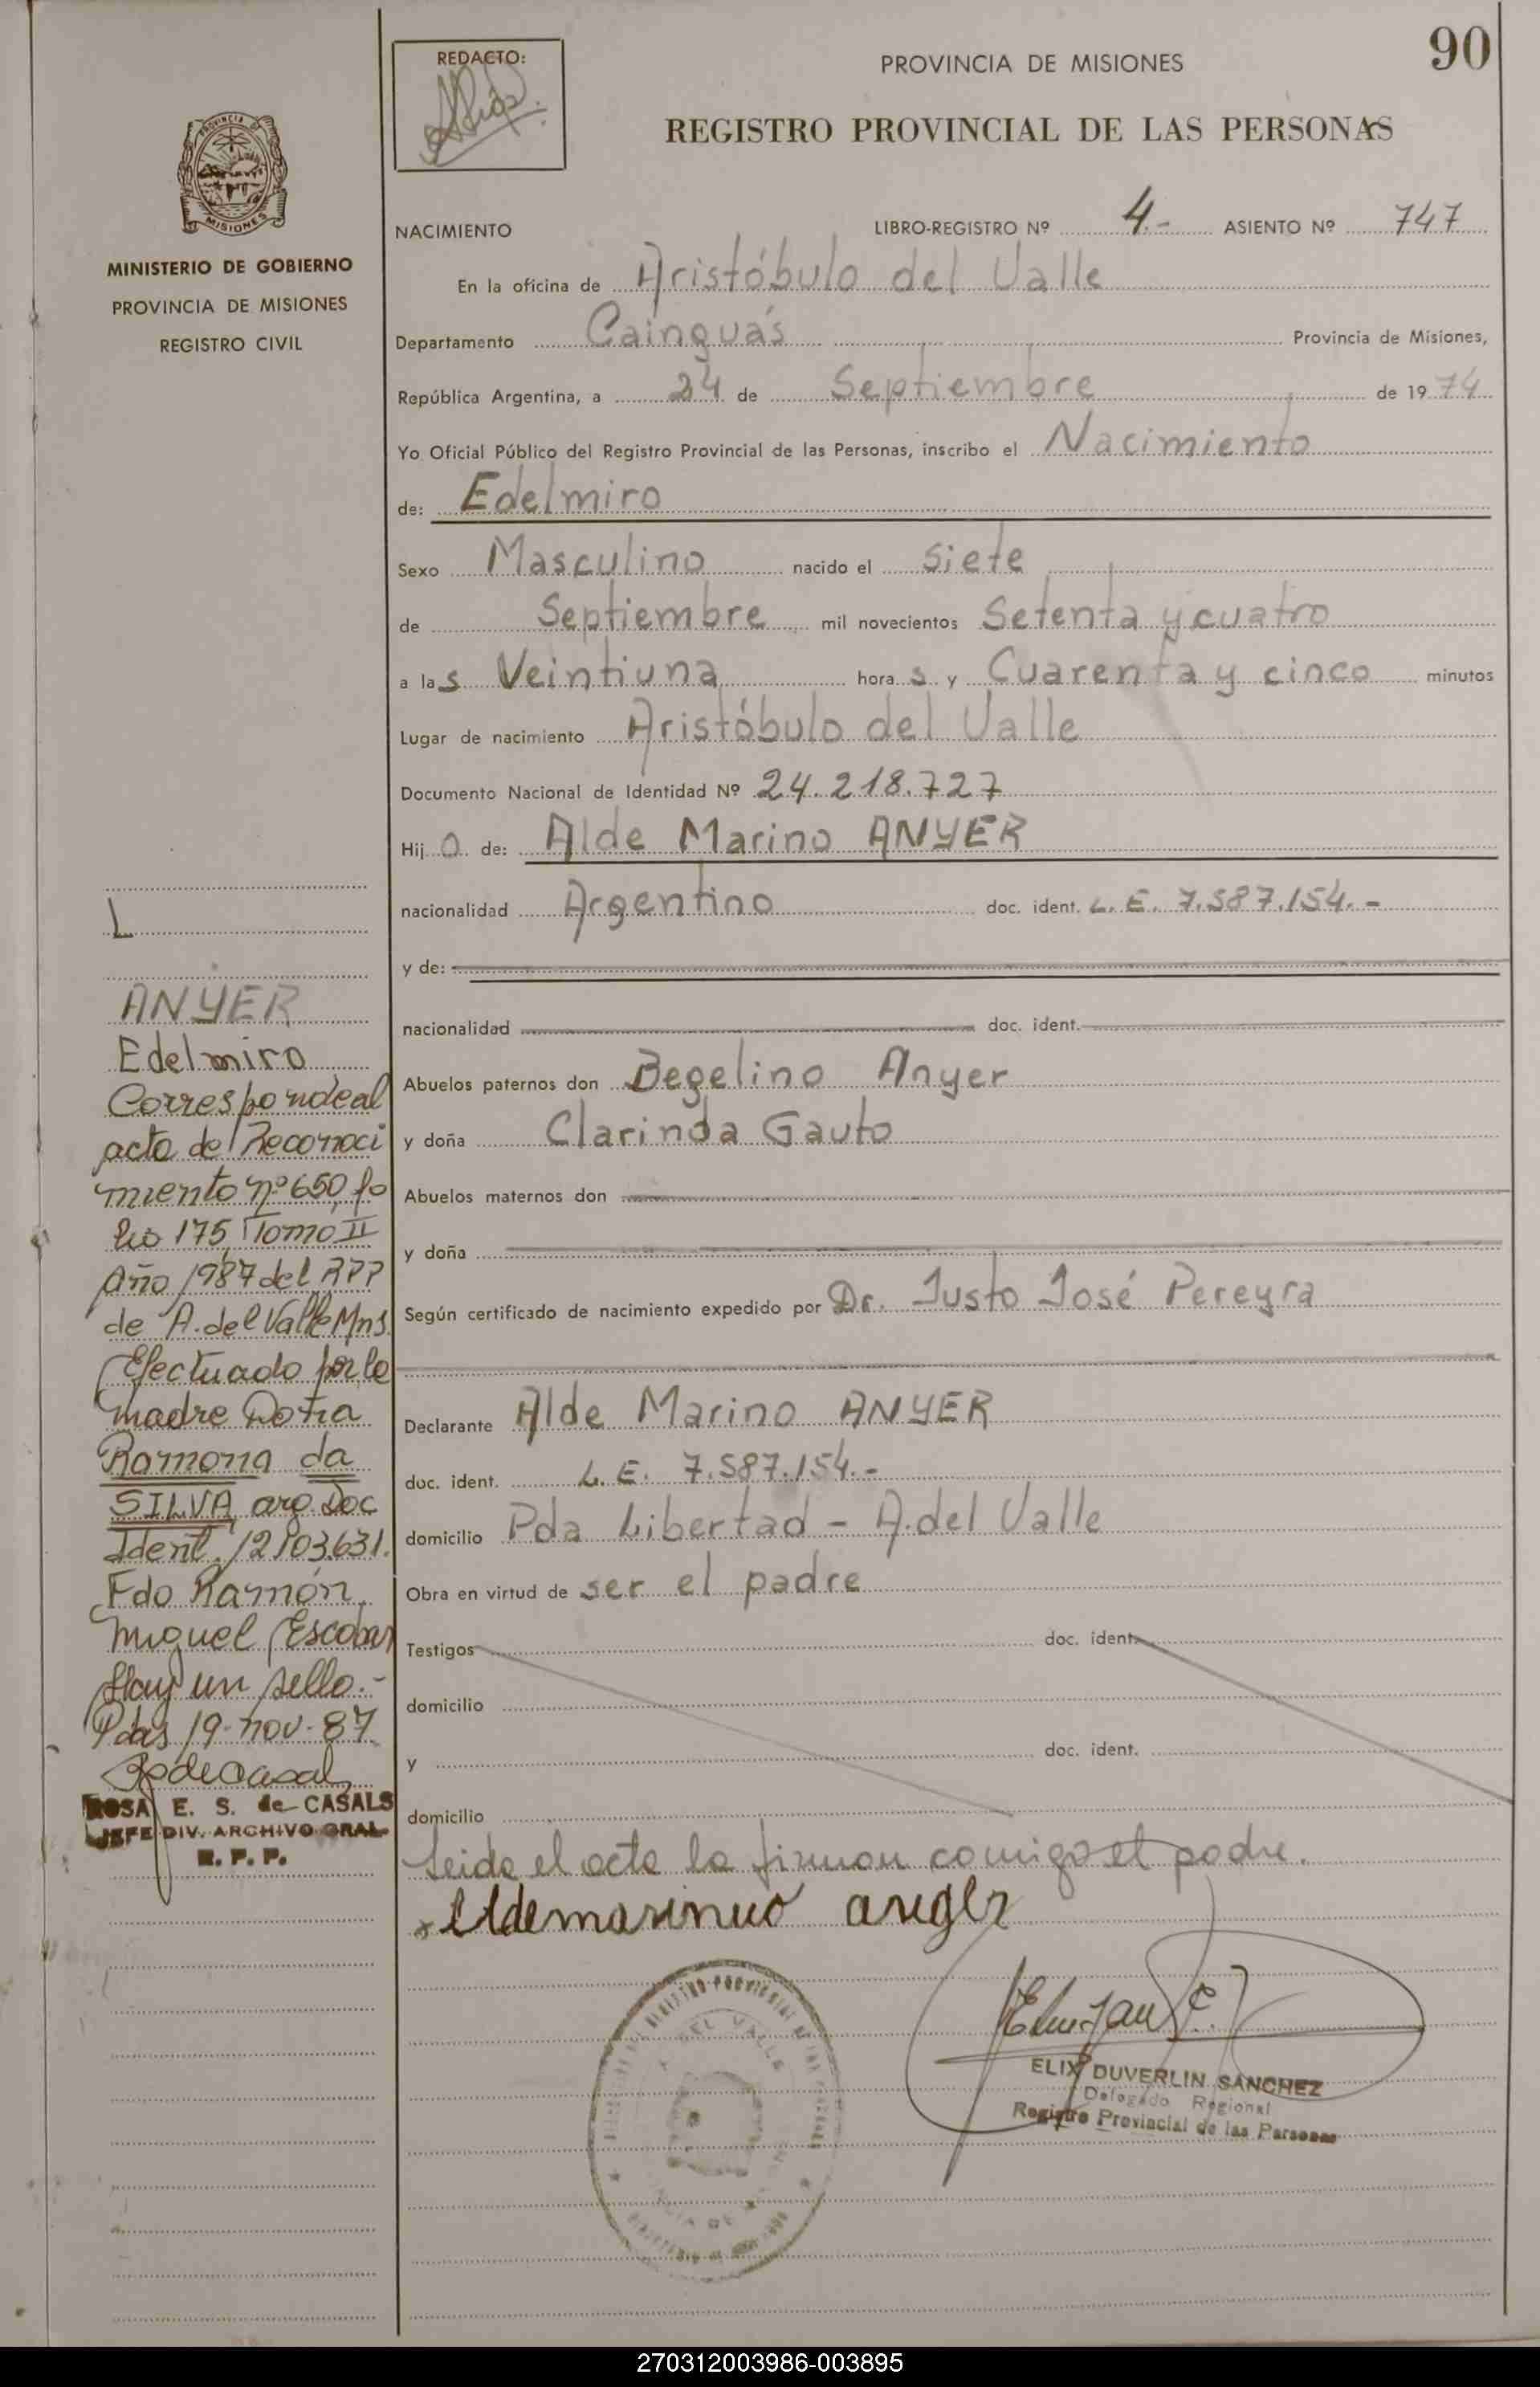 90
REDACTO:
PROVINCIA DE MISIONES
REGISTRO PROVINCIAL DE LAS PERSONAS
MISIONES
MINISTERIO DE GOBIERNO
PROVINCIA DE MISIONES
REGISTRO CIVIL
NACIMIENTO LIBRO-REGISTRO Nº 4.- ASIENTO Nº 747
En la oficina de Aristóbulo del Valle
Departamento Cainguás Provincia de Misiones,
República Argentina, a 24 de Septiembre de 1974
Yo Oficial Público del Registro Provincial de las Personas, inscribo el Nacimiento
de: Edelmiro
Sexo Masculino nacido el siete
de Septiembre mil novecientos Setenta y cuatro
a las Veintiuna horas y Cuarenta y cinco minutos
Lugar de nacimiento Aristóbulo del Valle
Documento Nacional de Identidad Nº 24.218.727
Hijo de: Alde Marino ANYER
nacionalidad Argentino doc. ident. L.E. 7.587.154.-
y de:
nacionalidad doc. ident.
Abuelos paternos don Begelino Anyer
y doña Clarinda Gauto
Abuelos maternos don
y doña
Según certificado de nacimiento expedido por Dr. Justo José Pereyra
Declarante Alde Marino ANYER
doc. ident. L.E. 7.587.154.-
domicilio Pda Libertad - A. del Valle
Obra en virtud de ser el padre
Testigos doc. ident.
domicilio
y doc. ident.
domicilio
Leida el acta la firman comigo el padre.
Aldemarinuo anger
ELIX DUVERLIN SANCHEZ
Delegado Regional
Registro Provincial de las Personas
DEL VALLE
L
ANYER
Edelmiro
Corresponde al
acta de Reconoci
miento nº 650 fo
lio 175 Tomo II
Año 1987 del RPP
de A. del Valle Mns.
Efectuado por la
madre Doña
Ramona da
SILVA arg. Doc
Ident. 12103.631.
Fdo Ramón
Miguel Escobar
Hay un sello.-
Pdas 19-nov-87
ROSA E. S. de CASALS
JEFE DIV. ARCHIVO GRAL.
R. P. P.
270312003986-003895